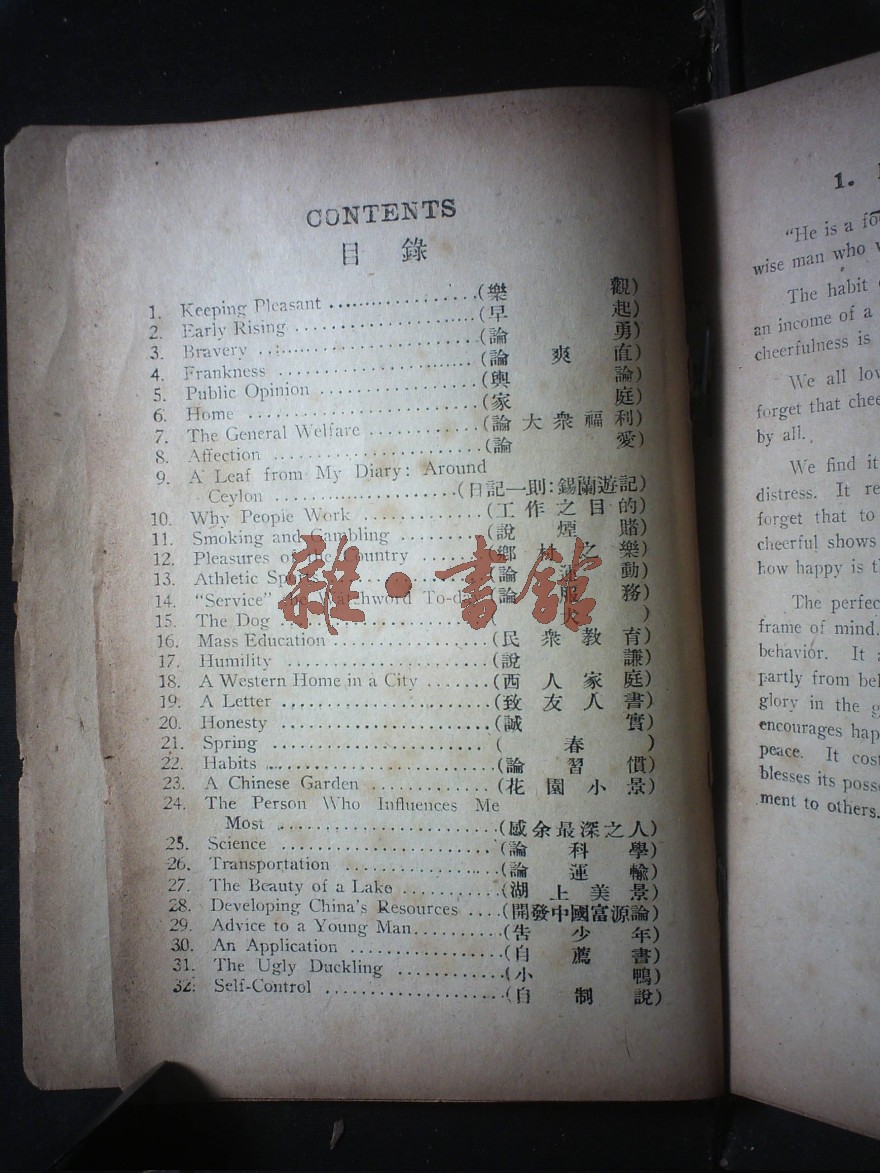 CONTENTS
目錄
1. Keeping Pleasant ....................(樂觀)
2. Early Rising ........................(早起)
3. Bravery ............................(論勇)
4. Frankness ..........................(論爽直)
5. Public Opinion .....................(輿論)
6. Home ..............................(家庭)
7. The General Welfare ............(論大衆福利)
8. Affection ..........................(論愛)
9. A Leaf from My Diary: Around
Ceylon .....................(日記一則:錫蘭遊記)
10. Why People Work ..............(工作之目的)
11. Smoking and Gambling ..........(說煙賭)
12. Pleasures of the Country ........(鄉村之樂)
13. Athletic Sports ................(論運動)
14. "Service" the Watchword To-d (論服務)
15. The Dog ........................(犬)
16. Mass Education .................(民衆教育)
17. Humility .......................(說謙)
18. A Western Home in a City .......(西人家庭)
19. A Letter ........................(致友人書)
20. Honesty ........................(誠實)
21. Spring .........................(春)
22. Habits .........................(論習慣)
23. A Chinese Garden ...............(花園小景)
24. The Person Who Influences Me
Most ..........................(感余最深之人)
25. Science ........................(論科學)
26. Transportation ..................(論運輸)
27. The Beauty of a Lake ...........(湖上美景)
28. Developing China's Resources ....(開發中國富源論)
29. Advice to a Young Man..........(告少年)
30. An Application .................(自薦書)
31. The Ugly Duckling .............(小鴨)
32. Self-Control ....................(自制說)
雜·書館
1.
"He is a
wise man who
The habit
an income of a
cheerfulness is
We all
forget that
by all.
We find it
distress. It
forget that to
cheerful shows
how happy is
The
frame of mind.
behavior. It
partly from
glory in the
encourages
peace. It
blesses its
ment to others.